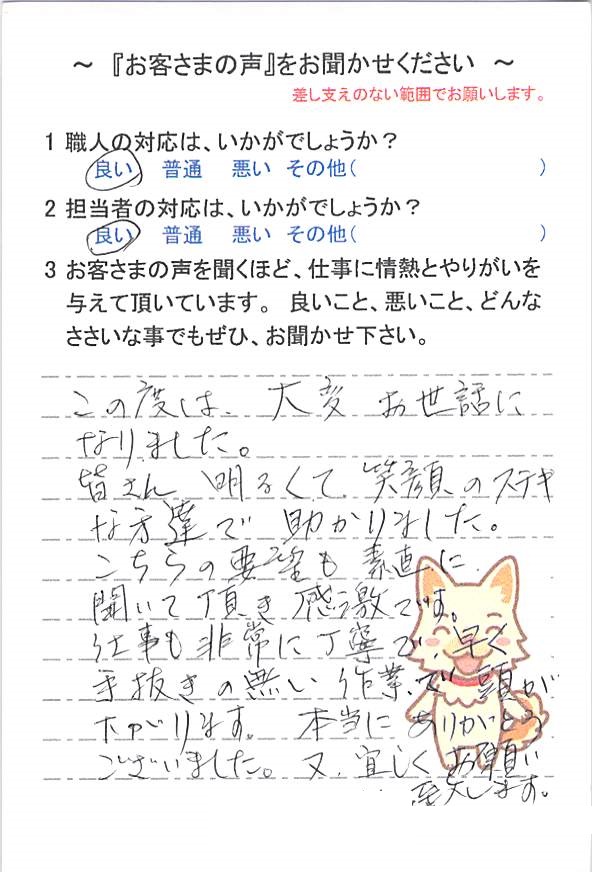 ～ 『お客さまの声』をお聞かせください ～
差し支えのない範囲でお願いします。
1 職人の対応は、いかがでしょうか？
良い 普通 悪い その他( )
2 担当者の対応は、いかがでしょうか？
良い 普通 悪い その他( )
3 お客さまの声を聞くほど、仕事に情熱とやりがいを
与えて頂いています。 良いこと、悪いこと、どんな
ささいな事でもぜひ、お聞かせ下さい。
この度は、大変 お世話に
なりました。
皆さん 明るくて 笑顔のステキ
な方達で 助かりました。
こちらの要望も 素直に
聞いて頂き 感激です。
仕事も非常に丁寧で、早く
手抜きの無い 作業で 頭が
下がります。 本当に ありがとう
ございました。 又、宜しく お願い
致します。